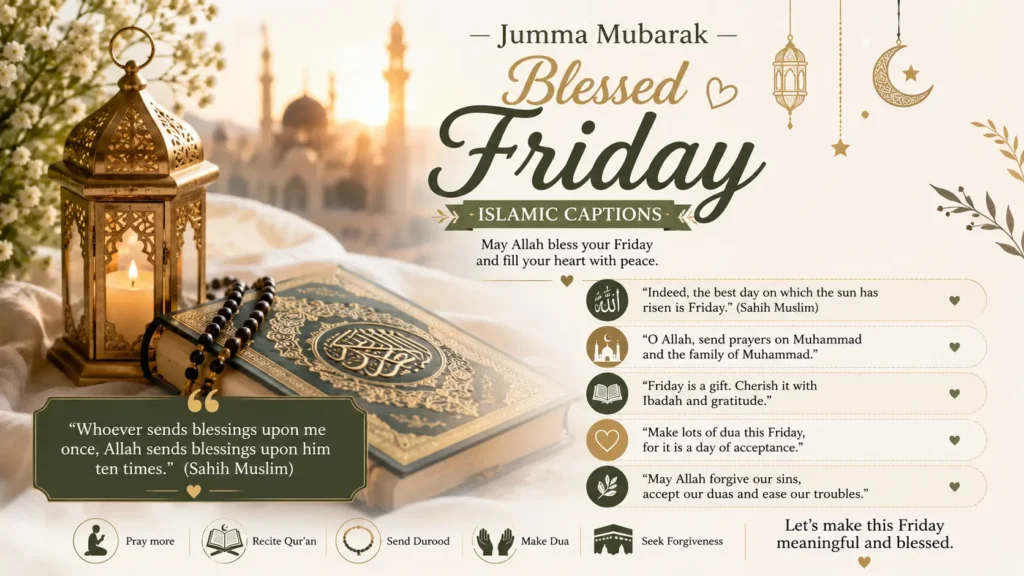 — Jumma Mubarak —
Blessed
Friday
- ISLAMIC CAPTIONS -
May Allah bless your Friday
and fill your heart with peace.
الله
“Indeed, the best day on which the sun has
risen is Friday.” (Sahih Muslim)
“O Allah, send prayers on Muhammad
and the family of Muhammad.”
“Friday is a gift. Cherish it with
Ibadah and gratitude.”
“Make lots of dua this Friday,
for it is a day of acceptance.”
“May Allah forgive our sins,
accept our duas and ease our troubles.”
“Whoever sends blessings upon me
once, Allah sends blessings upon him
ten times.” (Sahih Muslim)
Pray more
Recite Qur’an
Send Durood
Make Dua
Seek Forgiveness
Let’s make this Friday
meaningful and blessed.